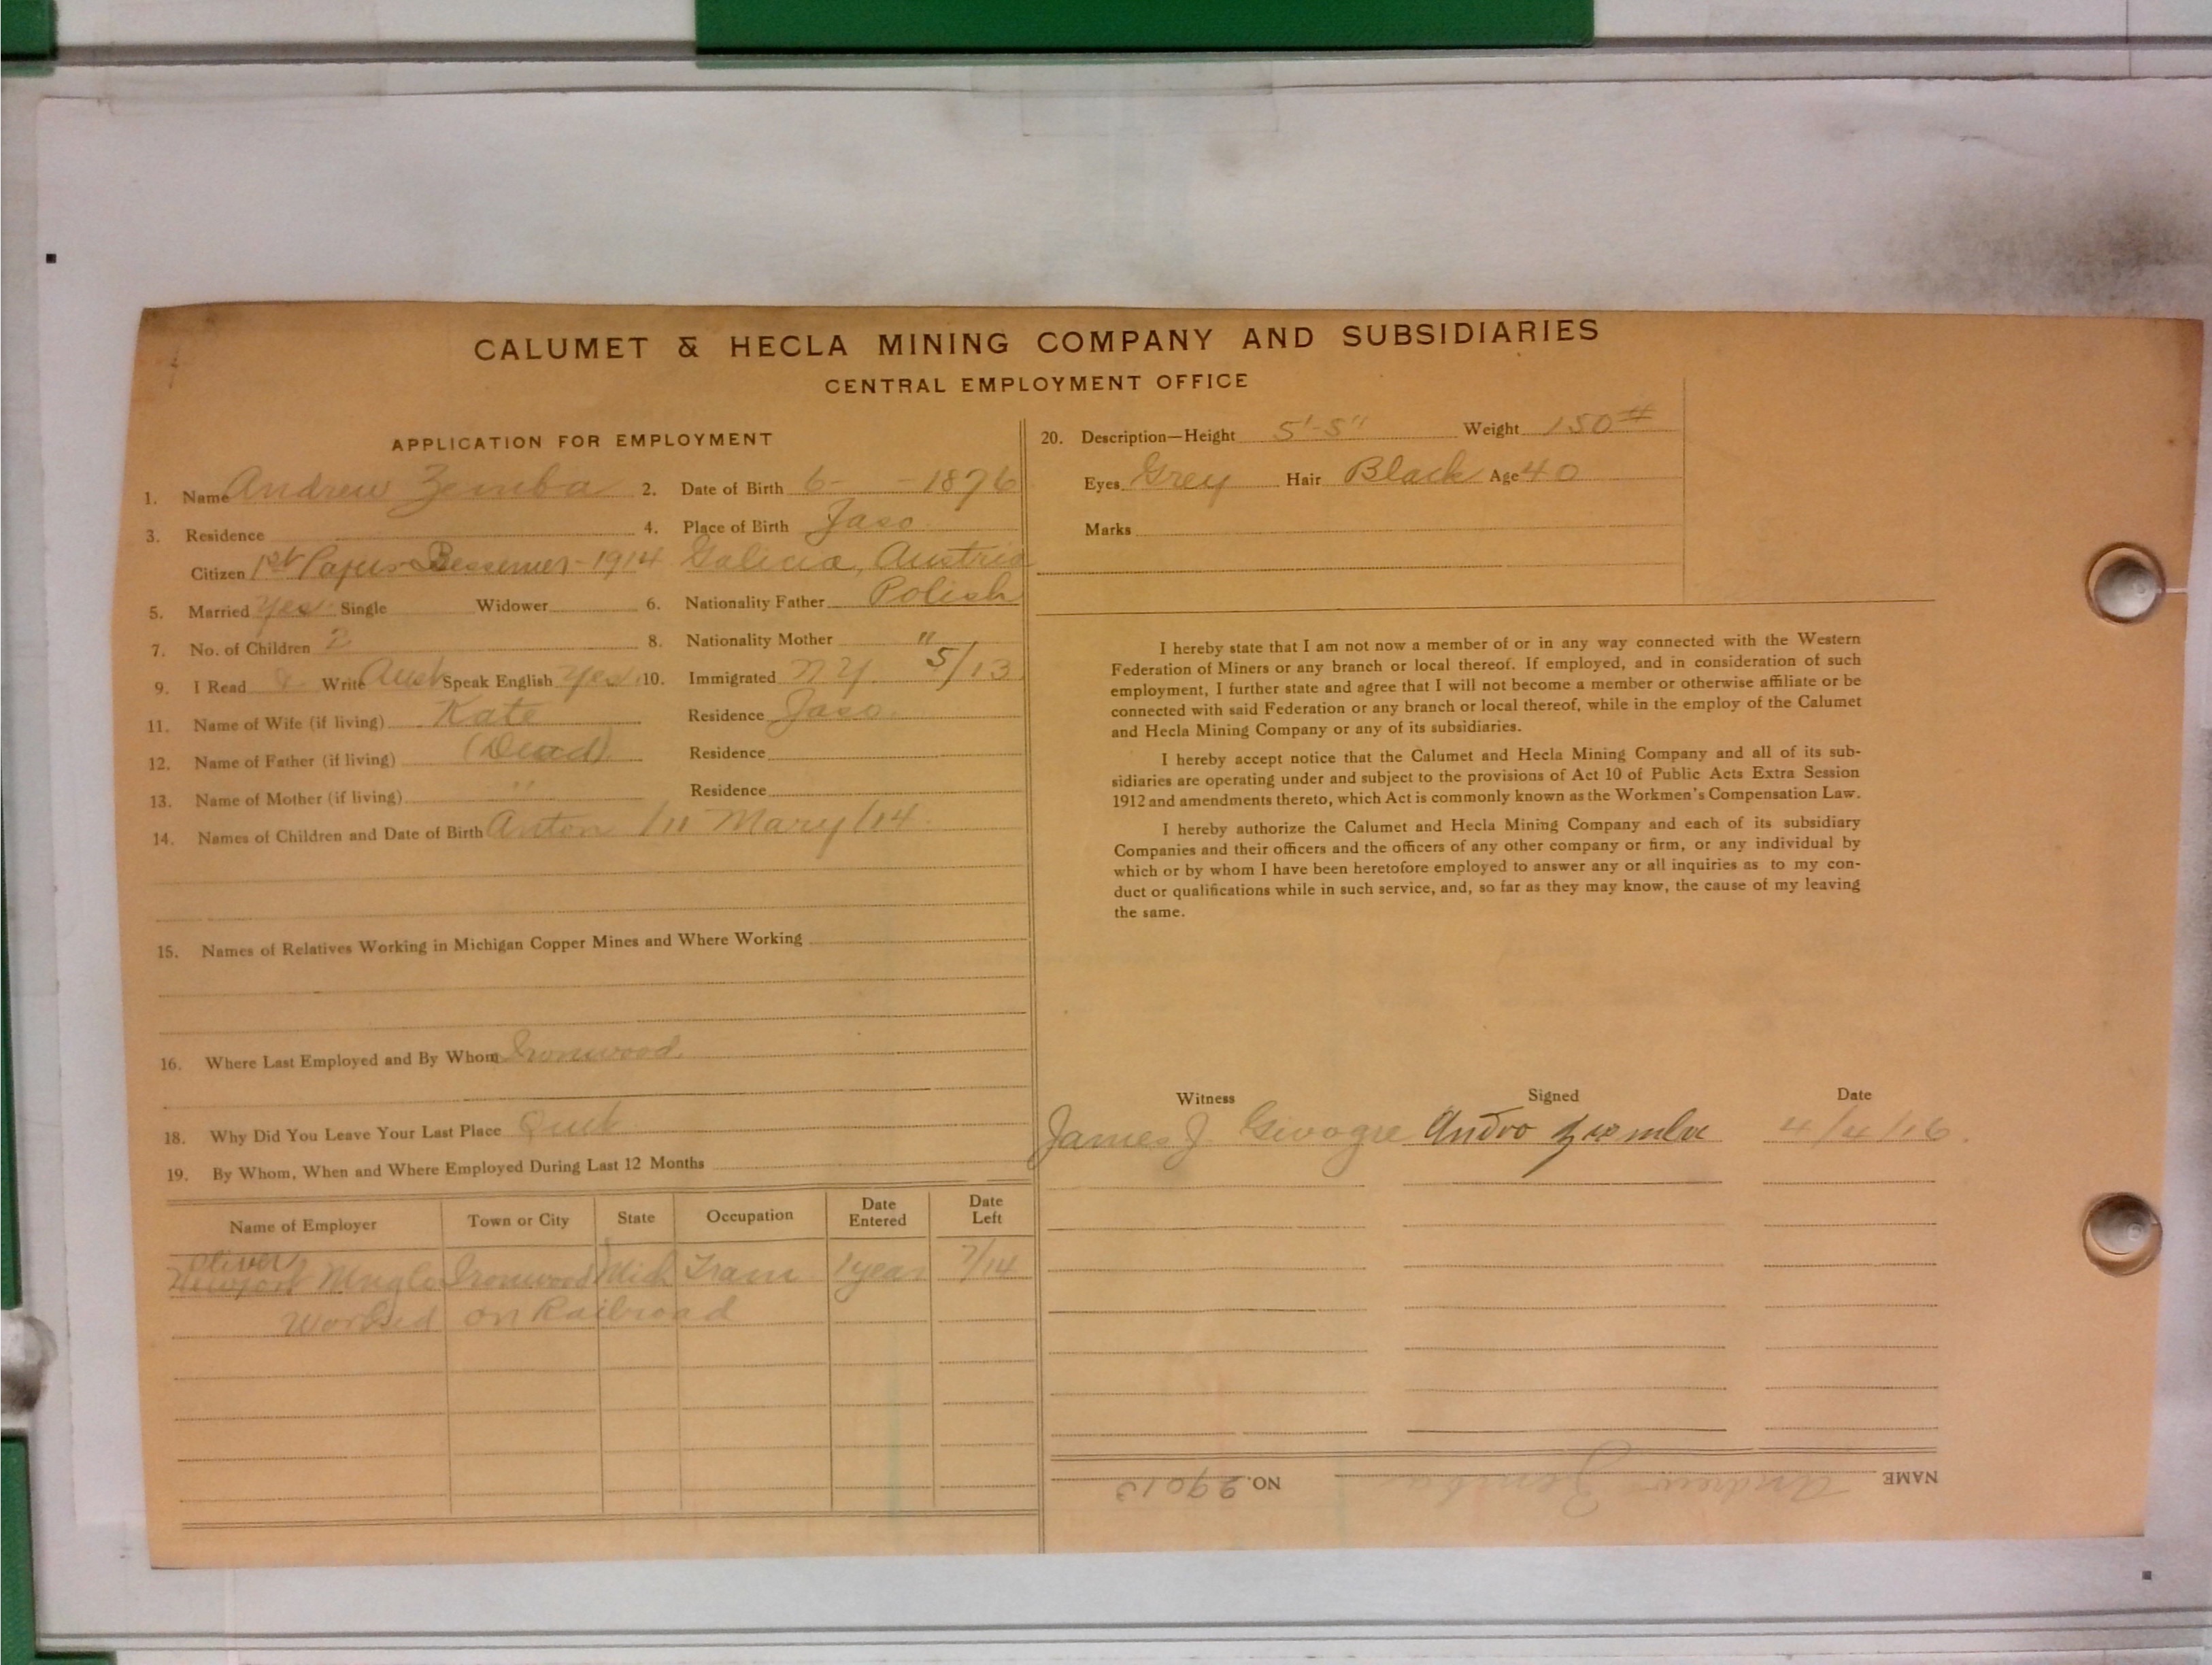 CALUMET & HECLA MINING COMPANY AND SUBSIDIARIES
CENTRAL EMPLOYMENT OFFICE
APPLICATION FOR EMPLOYMENT
1. Name Andrew Zemba 2. Date of Birth 6- -1876
3. Residence 4. Place of Birth Jaso
Citizen 1st Papers Bessemer-1914 Galicia, Austria
5. Married Yes Single Widower 6. Nationality Father Polish
7. No. of Children 2 8. Nationality Mother "
9. I Read & Write Aust Speak English Yes 10. Immigrated N.Y. 5/13
11. Name of Wife (if living) Kate Residence Jaso.
12. Name of Father (if living) (Dead) Residence
13. Name of Mother (if living) " Residence
14. Names of Children and Date of Birth Anton /11 Mary /14
15. Names of Relatives Working in Michigan Copper Mines and Where Working
16. Where Last Employed and By Whom Ironwood
18. Why Did You Leave Your Last Place Quit
19. By Whom, When and Where Employed During Last 12 Months
Name of Employer Town or City State Occupation Date Entered Date Left
Oliver
Newport Ironwood Mich Tram 1 year 7/14
Worked on Railroad
20. Description—Height 5'-5" Weight 150#
Eyes Grey Hair Black Age 40
Marks
I hereby state that I am not now a member of or in any way connected with the Western
Federation of Miners or any branch or local thereof. If employed, and in consideration of such
employment, I further state and agree that I will not become a member or otherwise affiliate or be
connected with said Federation or any branch or local thereof, while in the employ of the Calumet
and Hecla Mining Company or any of its subsidiaries.
I hereby accept notice that the Calumet and Hecla Mining Company and all of its sub-
sidiaries are operating under and subject to the provisions of Act 10 of Public Acts Extra Session
1912 and amendments thereto, which Act is commonly known as the Workmen's Compensation Law.
I hereby authorize the Calumet and Hecla Mining Company and each of its subsidiary
Companies and their officers and the officers of any other company or firm, or any individual by
which or by whom I have been heretofore employed to answer any or all inquiries as to my con-
duct or qualifications while in such service, and, so far as they may know, the cause of my leaving
the same.
Witness Signed Date
James J. 4/4/16.
NAME Andrew Zemba NO. 29013